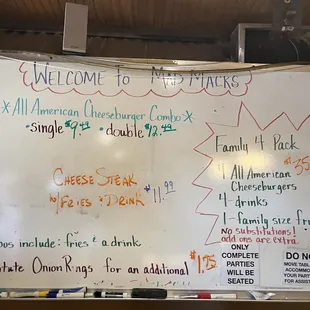 Welcome to Mad Macks
*All American Cheeseburger Combo*
•single $9.49 •double $12.49
Cheese Steak
w/ Fries & Drink $11.99
include: fries & a drink
Onion Rings for an additional $1.75
Family 4 Pack
4 All American
Cheeseburgers
4-drinks
1-family size
No substitutions!
add ons are extra
ONLY
COMPLETE
PARTIES
WILL BE
SEATED
DO
MOVE
PARTY
FOR